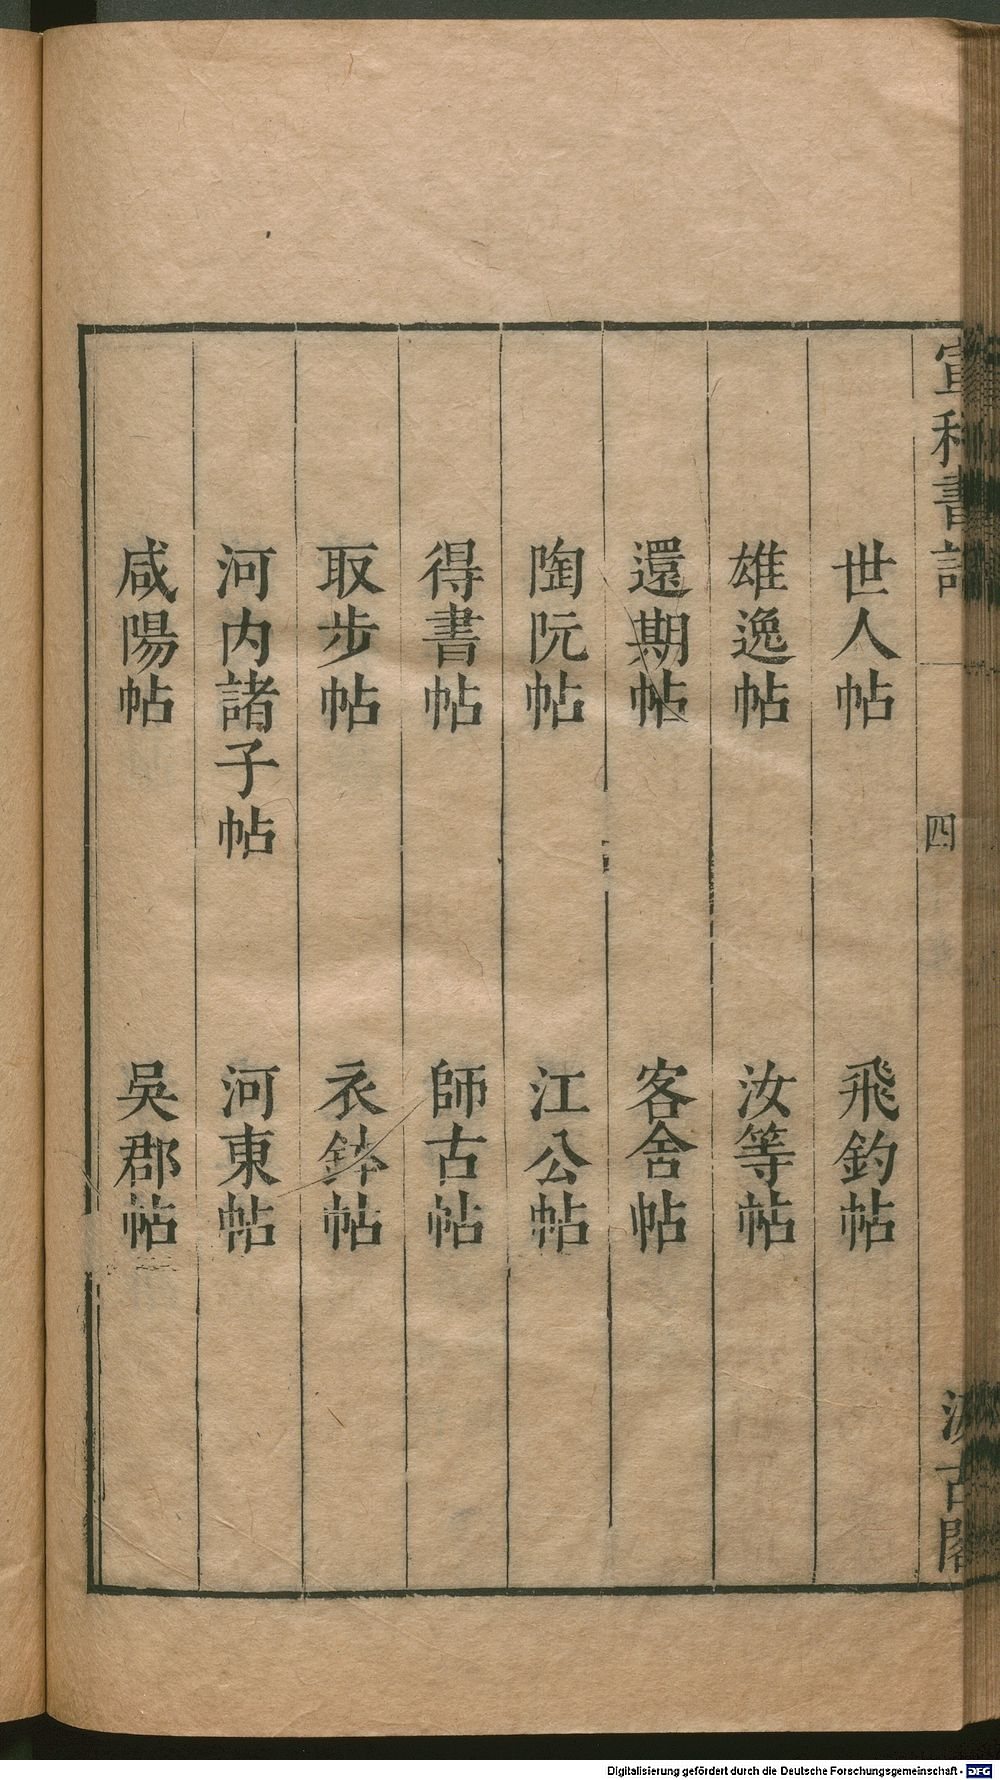 宣和書譜 四 汲古閣
世人帖 飛釣帖
雄逸帖 汝等帖
還期帖 客舍帖
陶阮帖 江公帖
得書帖 師古帖
取步帖 衣鉢帖
河内諸子帖 河東帖
咸陽帖 吳郡帖
Digitalisierung gefördert durch die Deutsche Forschungsgemeinschaft - DFG